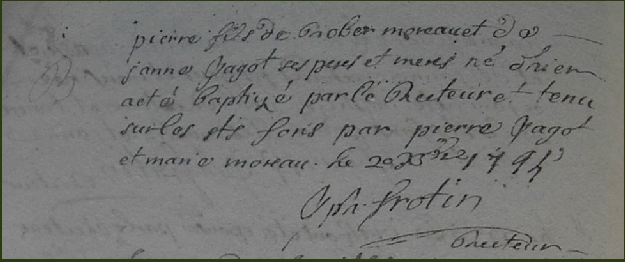 pierre fils de Rober moreau et de
janne Jagot ses pere et mere né d'hier
a eté baptizé par le Recteur et tenu
sur les sts fons par pierre Jagot
et marie moreau . Le
Frotin
Recteur